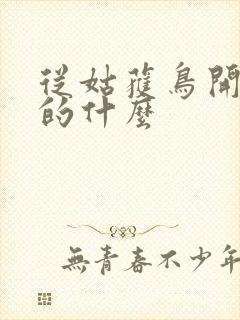 從姑蒦鳥開
的什麼
無青春不少年